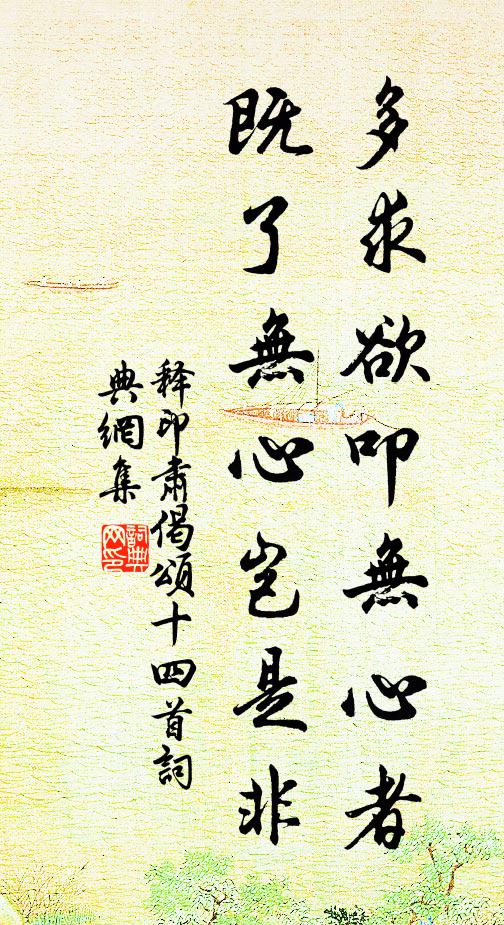 多求欲叩無心者
既了無心岂是非
释印肃偈頌十四首詞
典網集
詞典
网印